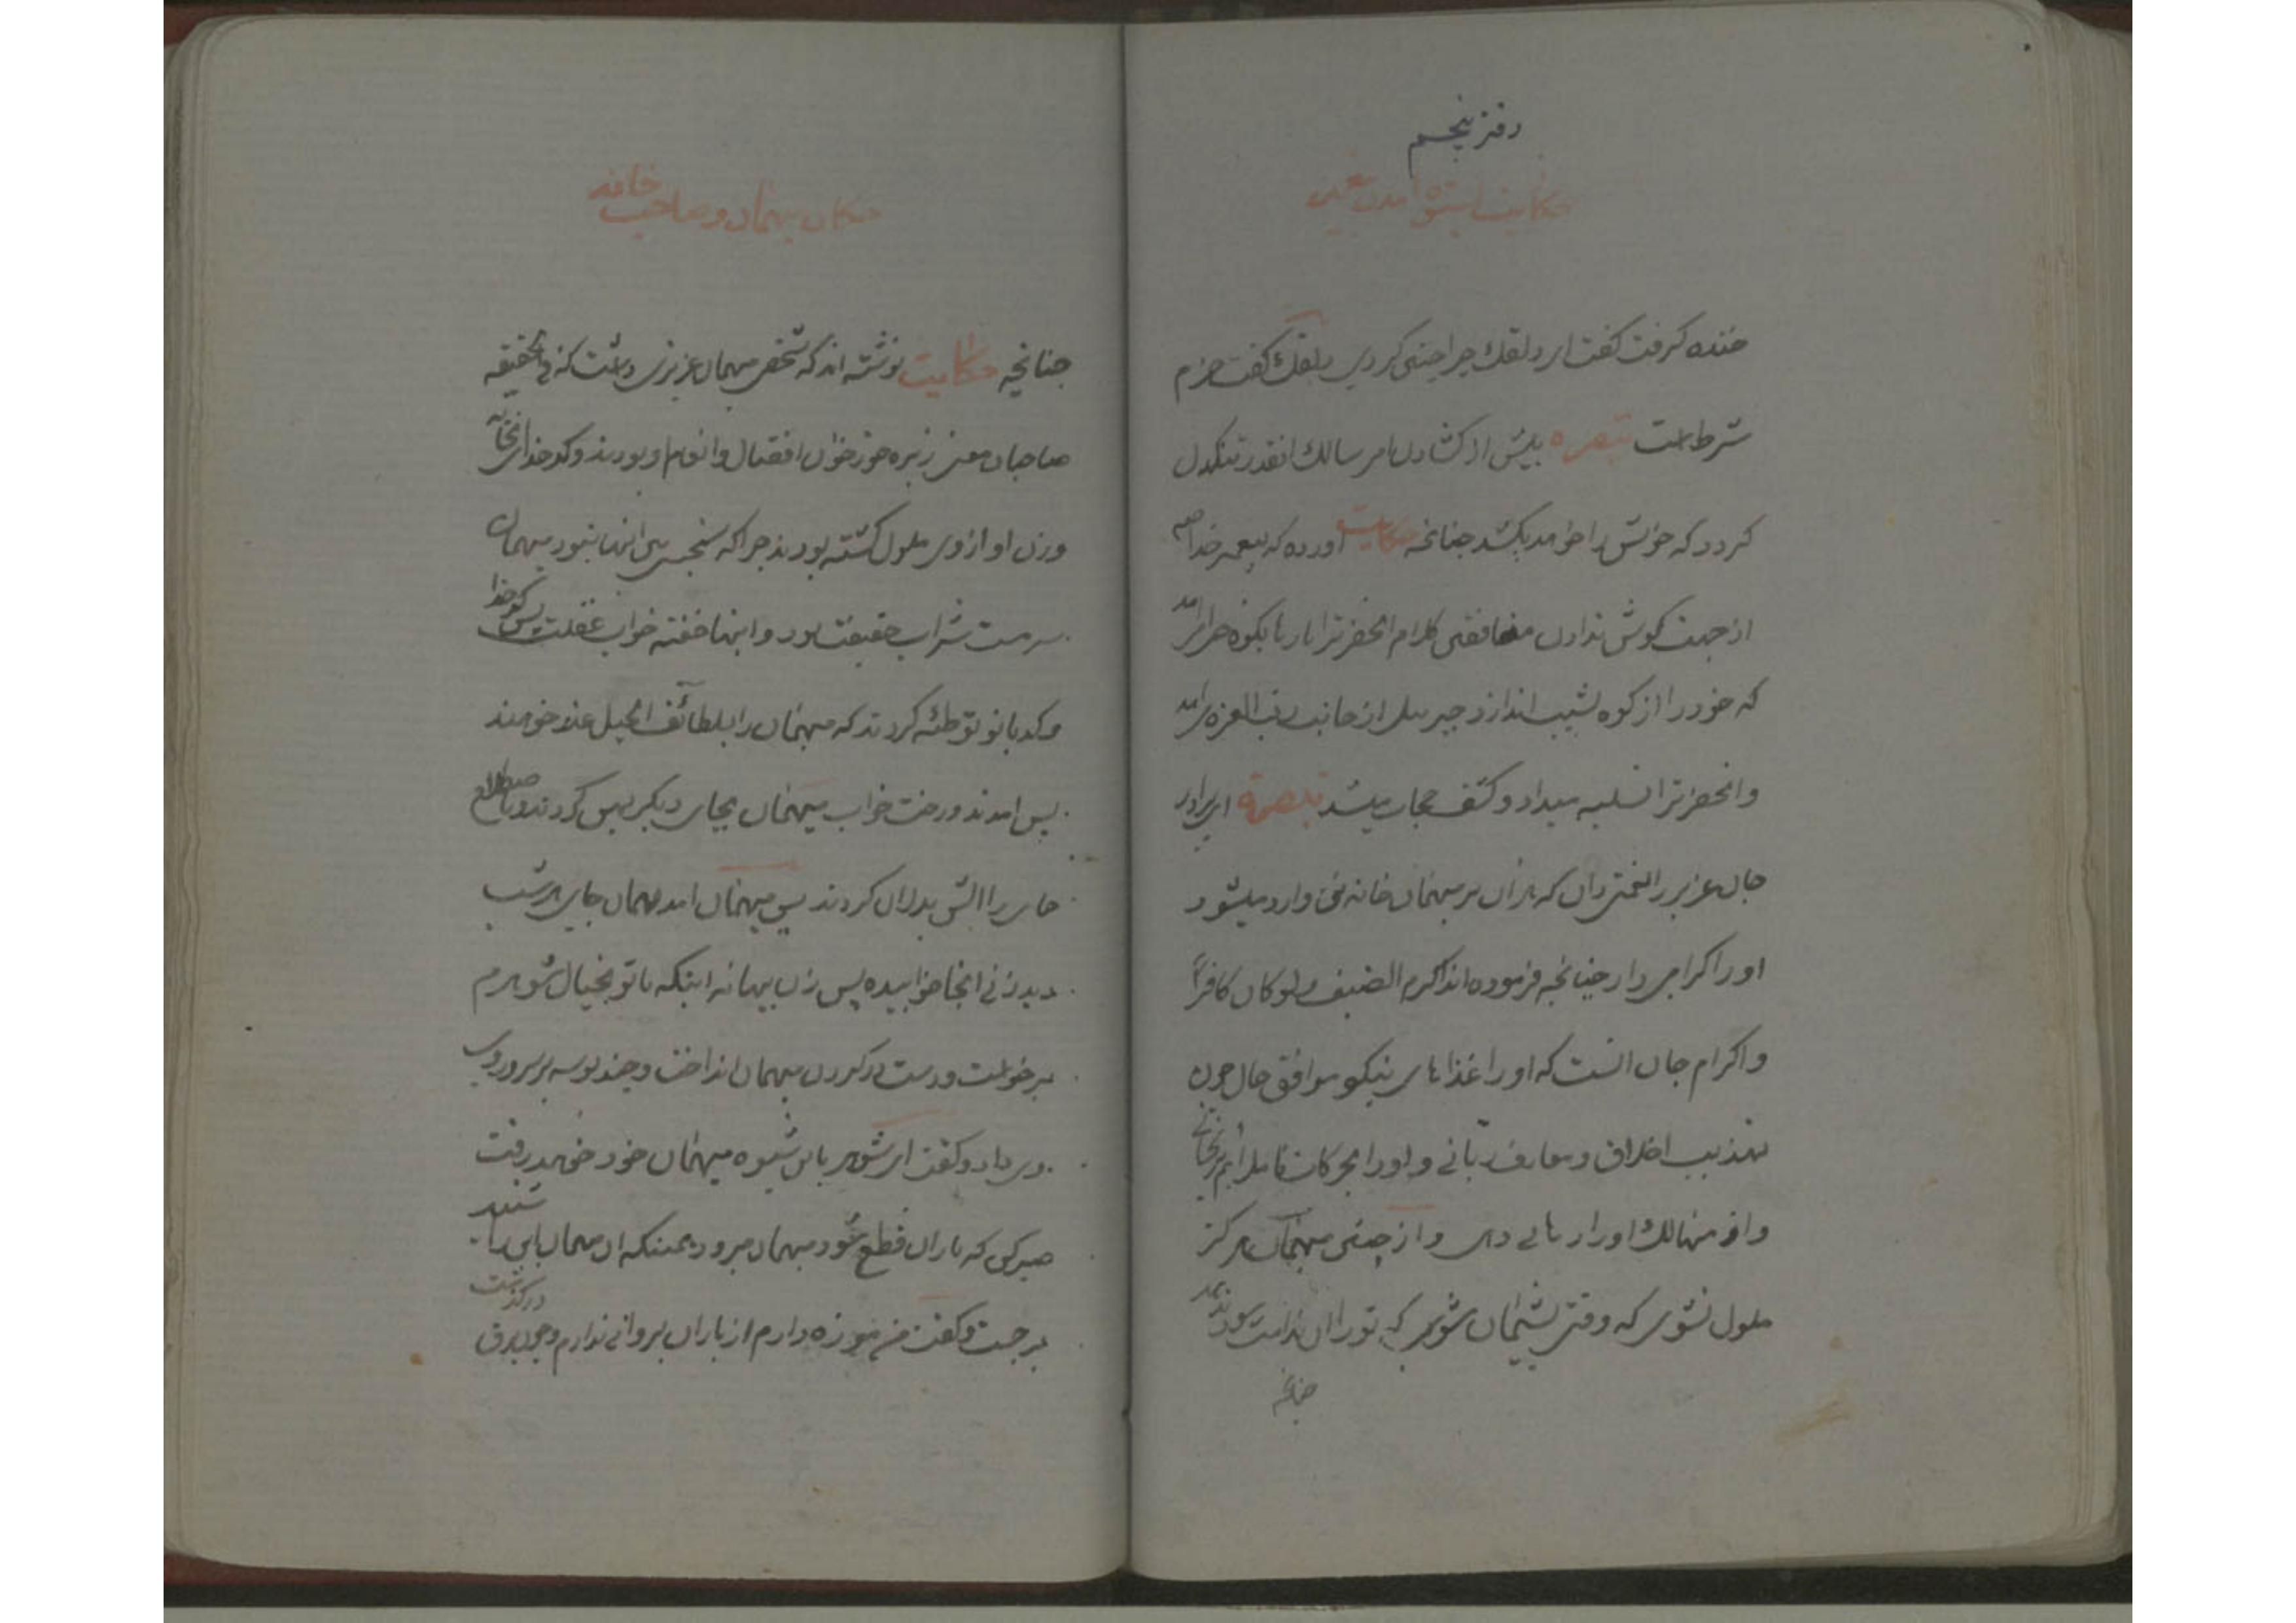 دفتر پنجم
حکایت بستوه آمدن پیغمبر
خنده گرفت گفت ای دلقک چرا چنین کردی دلقک گفت حزم
شرط است تبصره پیش از گشادن امر سالک انقدر تنگدل
گردد که خویش را خواهد بکشد چنانچه حکایت آورده که پیغمبر خدا
از جهت گوش ندادن منافقین کلام انحضرترا بارها بکوه حرا برامد
که خود را از کوه بشیب اندازد جبرییل از جانب رب العزه
وانحضرترا تسلیه میداد و کشف حجاب میشد تبصره ای برادر
جان عزیز را نعمتی دان که هر ان بر میهمان خانه وارد میشود
او را گرامی دار چنانچه فرموده اند اکرم الضیف ولو کان کافراً
و اکرام جان انست که او را غذاهای نیکو موافق حال چون
تهذیب اخلاق و معارف ربانی و او را بحرکات
و از مهالک او را رهایی دهی و از چنین میهمان هرگز
ملول نشوی که وقتی پشیمان شوی که تو را ان ندامت سود ندهد
چنانچه
حکایت میهمان و صاحب خانه
چنانچه حکایت نوشته اند که شخصی میهمان عزیزی داشت که فی الحقیقه
صاحبان معنی ریزه خور خوان افضال و انعام او بودند و کدخدای انخانه
وزن او از وی ملول گشته بودند چرا که سنجس انها نبود میهمان
سرمست شراب حقیقت بود و اینها خفته خواب غفلت پس کدخدا
و کدبانو توطئه کردند که میهمان را بلطائف الحیل عذر خواهند
پس امدند و رخت خواب میهمان بجای دیگر پهن کردند و باصطلاح
جای را الش بدلان کردند پس میهمان امد بهمان جای هر شب
دید زنی انجا خوابیده پس زن ببهانه اینکه با تو بخیال شوهرم
برخواست و دست در گردن میهمان انداخت و چند بوسه بر سر و روی
وی داد و گفت ای شوهر باین شیوه میهمان خود خواهد رفت
صبر کن که باران قطع شود میهمان میرود همینکه ان میهمان این را شنید
برجست و گفت من موزه دارم از باران پروائی ندارم و چون برق درگذشت